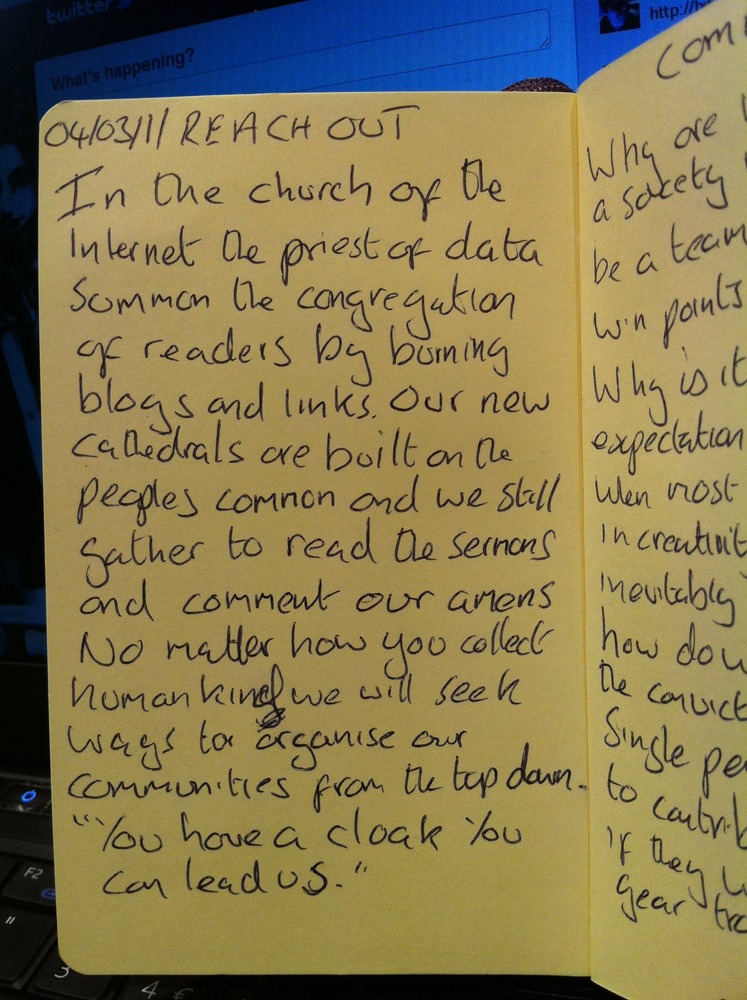 twitter
What's happening?
http://
04/03/11 REACH OUT
In the church of the
Internet the priest of data
Summon the congregation
of readers by burning
blogs and links. Our new
Cathedrals are built on the
peoples common and we still
gather to read the sermons
and comment our amens
No matter how you collect
humankind we will seek
ways to organise our
communities from the top down.
"You have a cloak You
can lead us."
Why are
a society
be a team
win points
Why is it
expectation
When most
in creativit
inevitably
how do w
the convict
Single pe
to contrib
if they
gear tra
F2
"
3
4 €